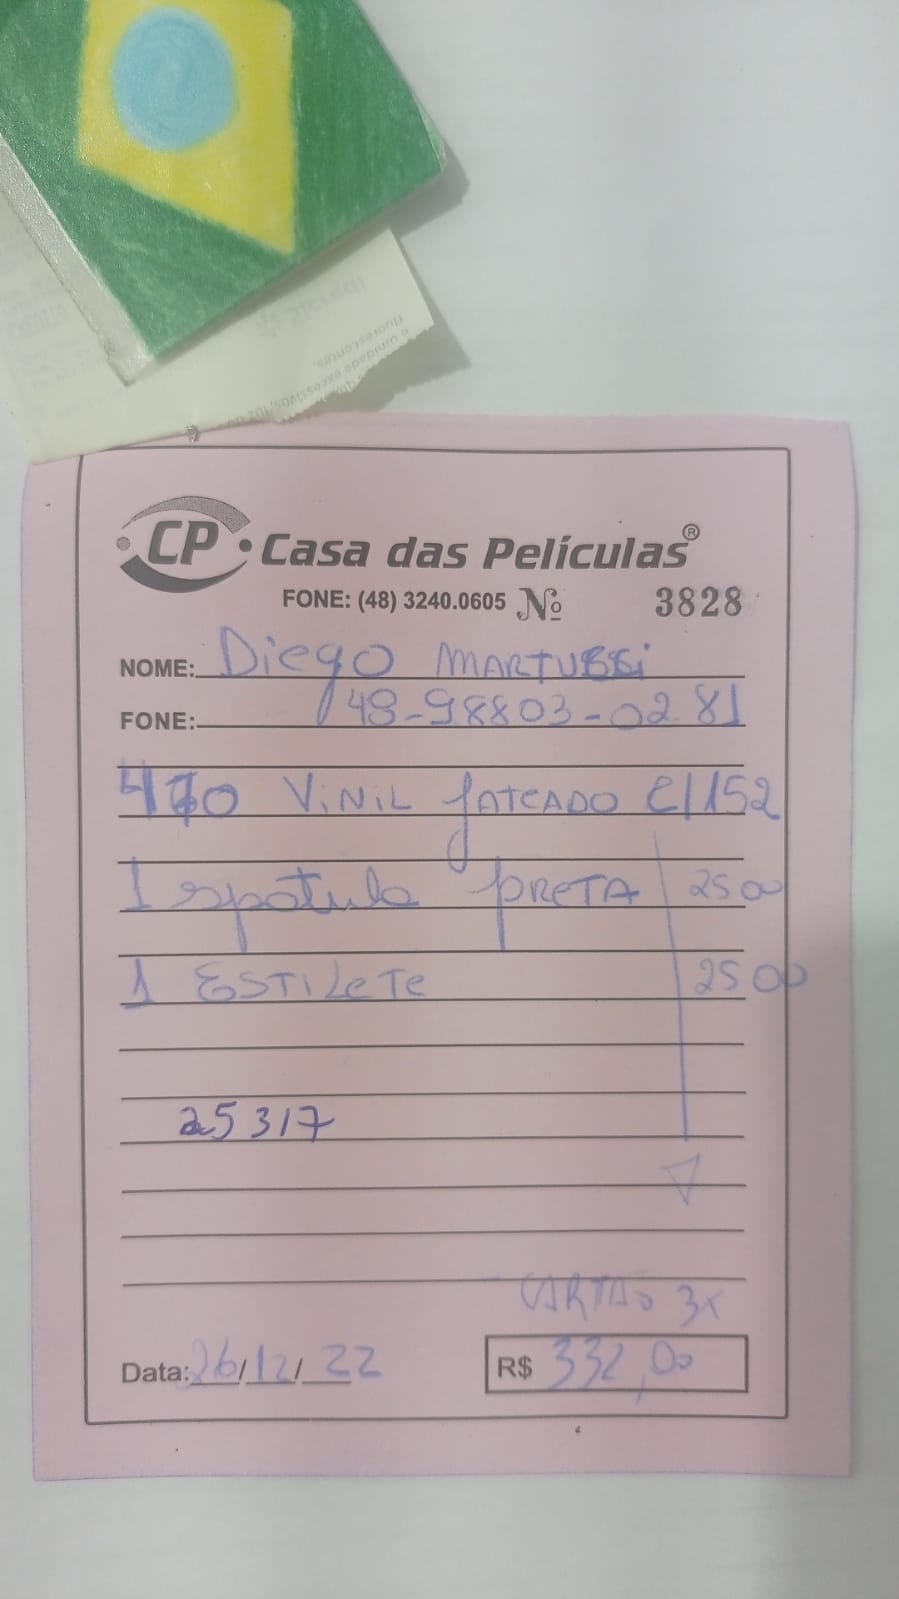 CP Casa das Películas®
FONE: (48) 3240.0605 Nº 3828
NOME: Diego MARTUBBi
FONE: 48-98803-0281
ViNiL JATEADO C/152
1 espatula PRETA 25 00
1 ESTiLeTe 25 00
25317
CARTAO 3x
Data: 26/12/22 R$ 332,00
e umidade excessivos,
fluorescentes.